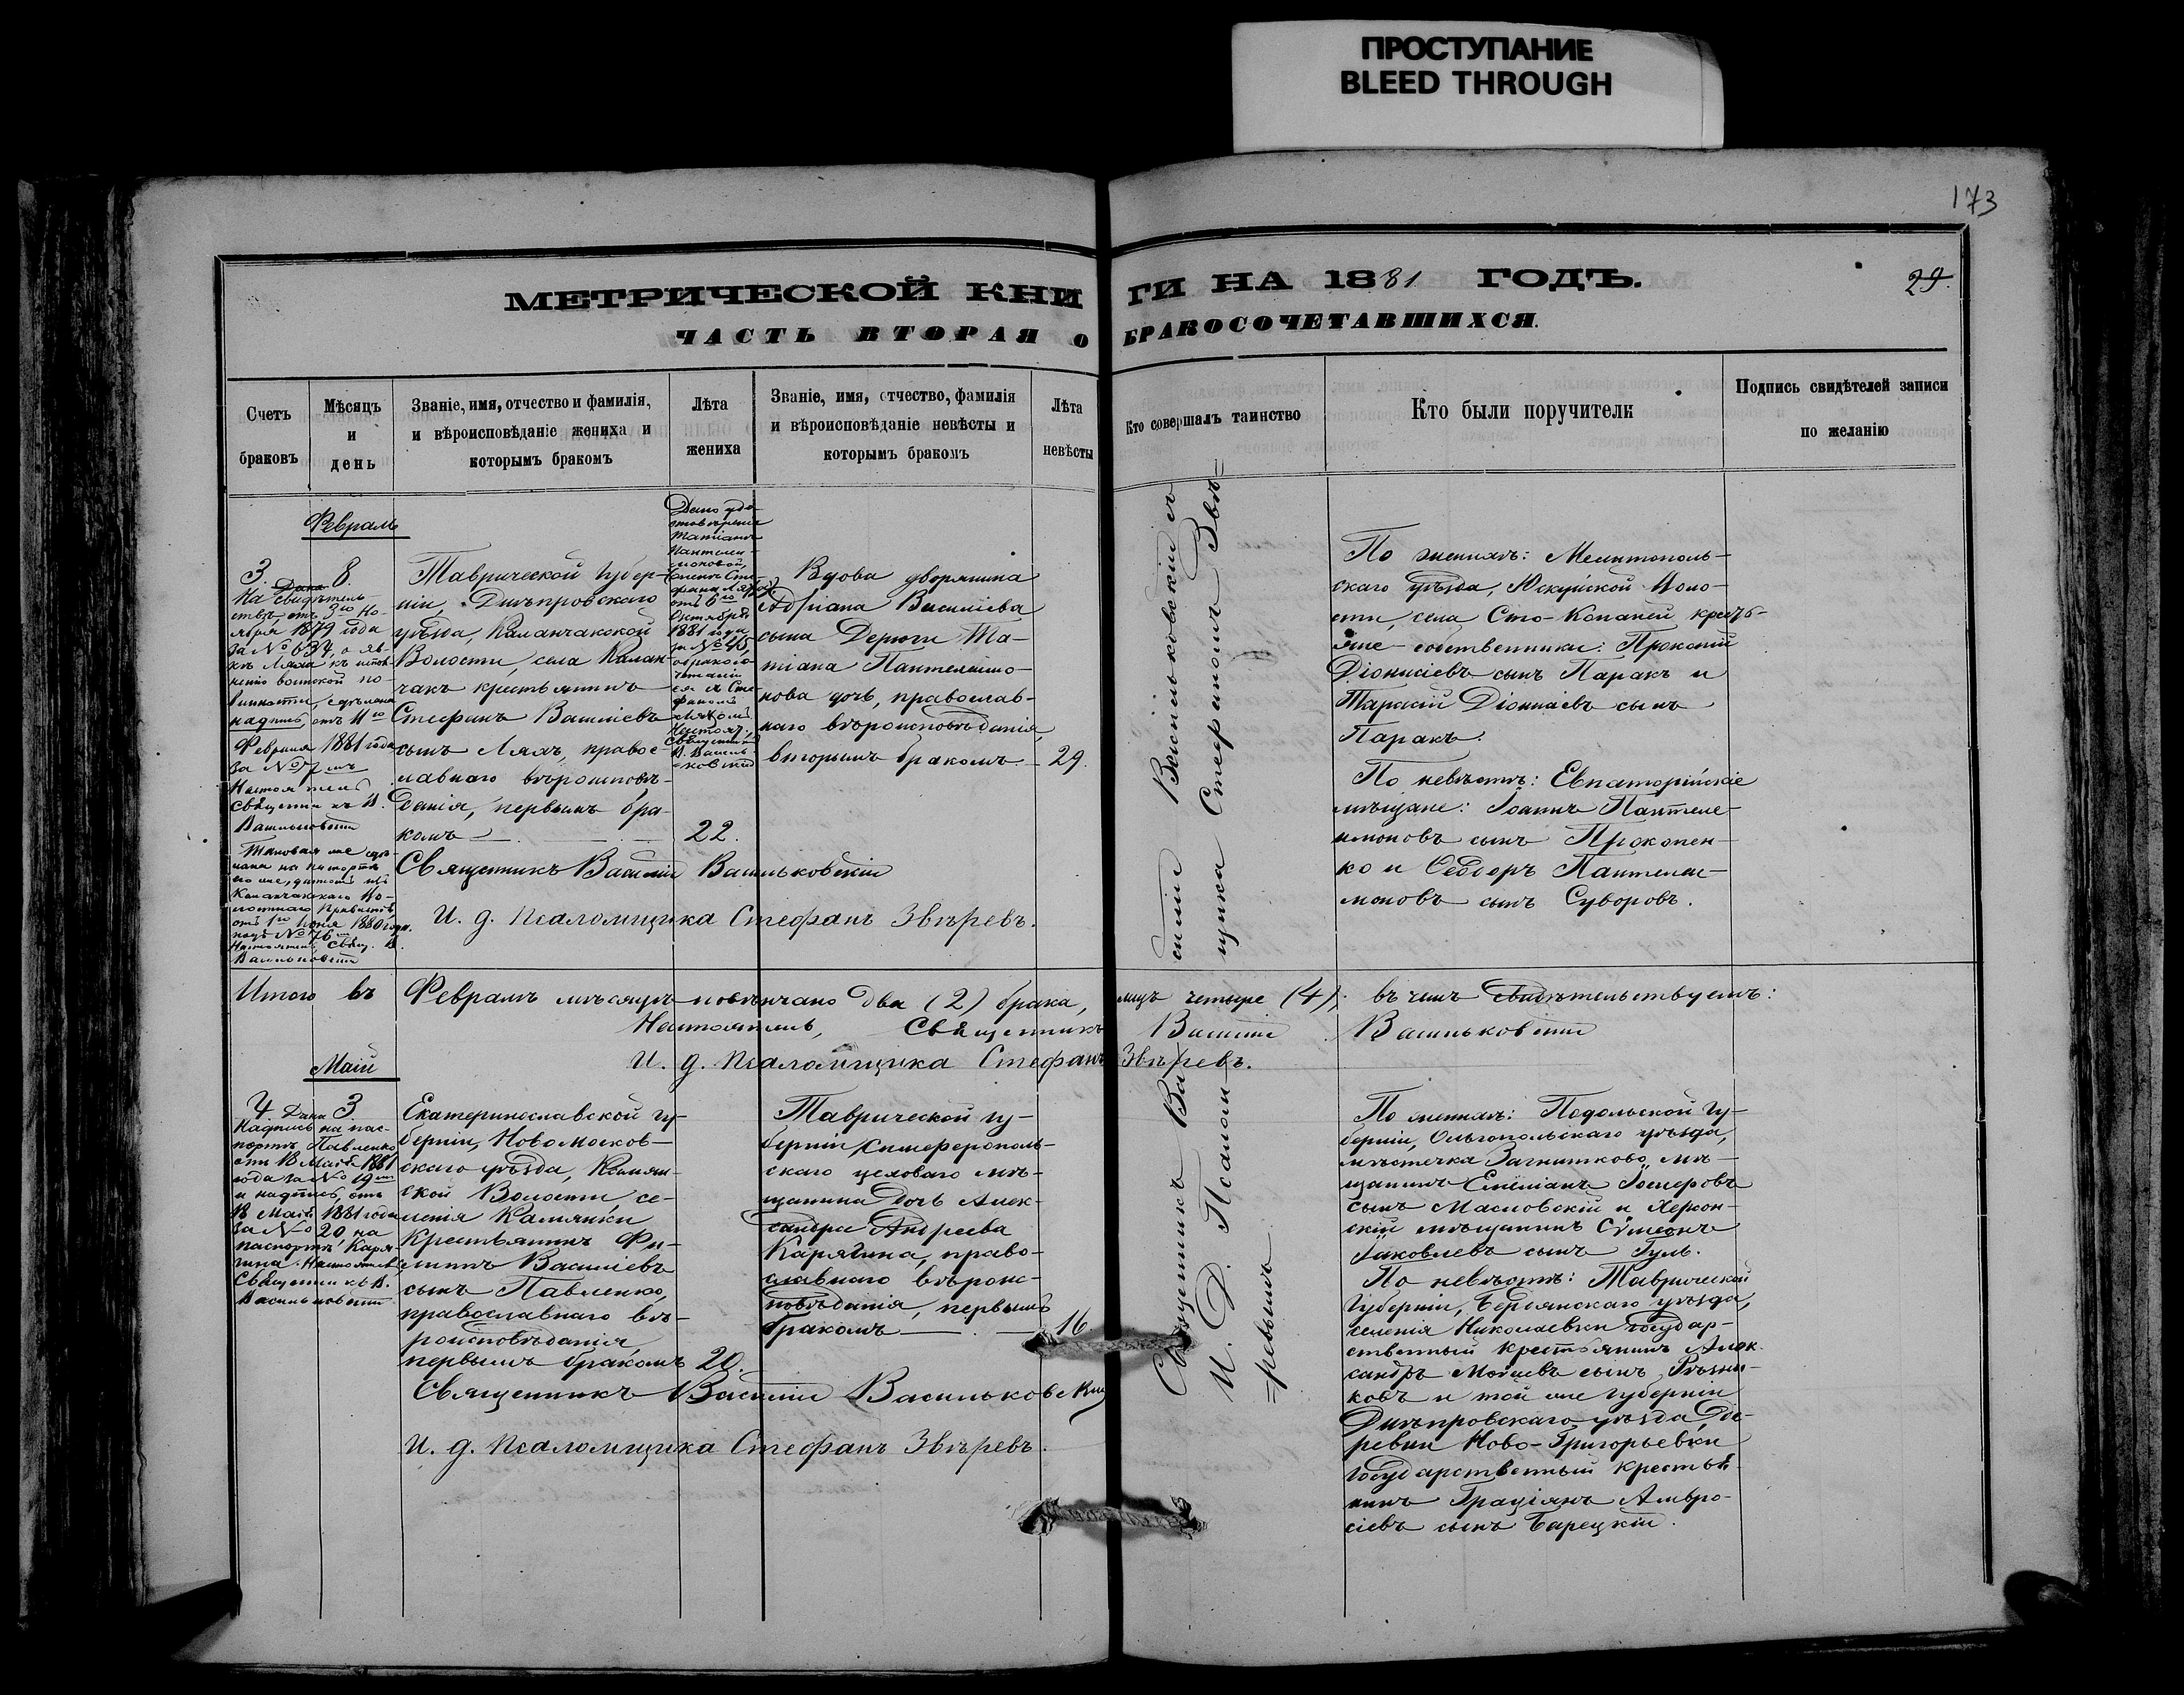 ПРОСТУПАНИЕ
BLEED THROUGH
173
МЕТРИЧЕСКОЙ КНИГИ НА 1881 ГОДЪ.
29.
ЧАСТЬ ВТОРАЯ О БРАКОСОЧЕТАВШИХСЯ.
Счетъ
браковъ
Мѣсяцъ
и
день
Званіе, имя, отчество и фамилія,
и вѣроисповѣданіе жениха и
которымъ бракомъ
Лѣта
жениха
Званіе, имя, отчество, фамилія
и вѣроисповѣданіе невѣсты и
которымъ бракомъ
Лѣта
невѣсты
Кто совершалъ таинство
Кто были поручители
Подпись свидѣтелей записи
по желанію
Февраль
3. 8.
Дана
На свидѣтель-
ствѣ, отъ 3го Но-
ября 1879 года
за № 634, о яв-
кѣ Ляха къ испол-
нению воинской по-
винности, сдѣлана
надпись, отъ 11го
Февраля 1881 года
за № 7мъ
Настоятель
Священникъ В.
Васильковскій
Таковая же сдѣ-
лана на паспортѣ
его же, данномъ изъ
Каланчакскаго Во-
лостнаго Правленія,
отъ 1го Іюня 1880 года
подъ № 76
Настоятель, Свящ. В.
Васильковскій
Таврической Губер-
ніи, Днѣпровскаго
уѣзда, Каланчакской
Волости, села Калан-
чакъ крестьянинъ
Стефанъ Василіевъ
сынъ Ляхъ, правос-
лавнаго вѣроисповѣ-
данія, первымъ бра-
комъ
22.
Дано удо-
стовѣреніе
Татіанѣ
Пантелеи-
моновой,
женѣ Сте-
фана Ляха,
отъ 6го
Октября
1881 года
за № 45,
о бракосо-
четаніи
ея съ Сте-
фаномъ
Ляхомъ.
Настоят.,
Священникъ
В. Василь-
ковскій
Вдова дворянина
Адріана Василіева
сына Дерюги Та-
тіана Пантелеимо-
нова дочь, православ-
наго вѣроисповѣданія,
вторымъ бракомъ
29.
Священникъ Василій Васильковскій
И. д. Псаломщика Стефанъ Звѣревъ.
силій Васильковскій съ
щика Стефаномъ Звѣ=
По женихѣ: Мелитополь-
скаго уѣзда, Юскуйской Воло-
сти, села Сто-Копаней, кресть-
яне-собственники: Прокопій
Діонисіевъ сынъ Паракъ и
Тарасій Діонисіевъ сынъ
Паракъ.
По невѣстѣ: Евпаторійскіе
мѣщане: Іоаннъ Пантеле-
имоновъ сынъ Прокопен-
ко и Ѳеодоръ Пантелеи-
моновъ сынъ Суворовъ.
Итого въ Февралѣ мѣсяцѣ повѣнчано два (2) брака, лицъ четыре (4); въ чемъ свидѣтельствуемъ:
Настоятель, Священникъ Василій Васильковскій
И. д. Псаломщика Стефанъ Звѣревъ.
Маій
4. 3.
Дана
Надпись на пас-
портѣ Павленко
отъ 18 Маія 1881
года за № 19мъ
и надпись, отъ
18 Маія 1881 года
за № 20, на
паспортѣ Каря-
гина. Настоятель
Священникъ В.
Васильковскій
Екатеринославской гу-
берніи, Новомосков-
скаго уѣзда, Камян-
ской Волости, се-
ленія Камянки
крестьянинъ Фи-
липпъ Василіевъ
сынъ Павленко,
православнаго вѣ-
роисповѣданія,
первымъ бракомъ
20.
Таврической гу-
берніи Симферополь-
скаго цеховаго мѣ-
щанина дочь Алек-
сандра Андреева
Карягина, право-
славнаго вѣроис-
повѣданія, первымъ
бракомъ
16
Священникъ Василій Васильковскій
И. д. Псаломщика Стефанъ Звѣревъ.
Священникъ Ва
И. Д. Псалом
=ревымъ
По женихѣ: Подольской гу-
берніи, Ольгопольскаго уѣзда,
мѣстечка Загнитково мѣ-
щанинъ Емиліанъ Іосифовъ
сынъ Масловскій и Херсон-
скій мѣщанинъ Сѵмеонъ
Іаковлевъ сынъ Гуль.
По невѣстѣ: Таврической
Губерніи, Бердянскаго уѣзда,
селенія Николаевки государ-
ственный крестьянинъ Алек-
сандръ Моисеевъ сынъ Рѣзни-
ковъ и той же губерніи
Днѣпровскаго уѣзда, де-
ревни Ново-Григорьевки
государственный крестья-
нинъ Граціянъ Амвро-
сіевъ сынъ Барецкій.